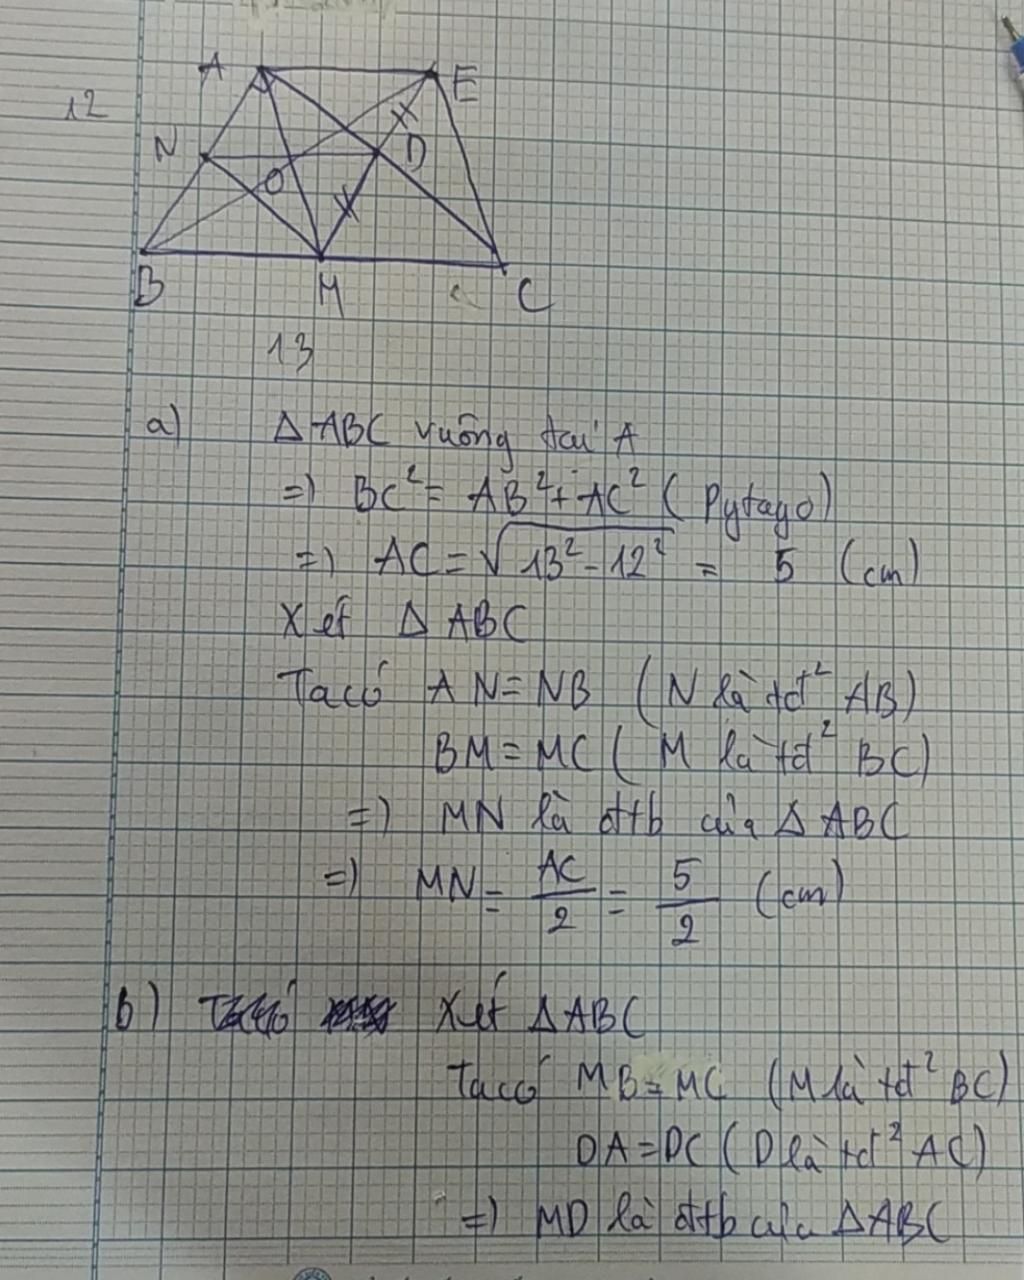 A
E
12
N
D
O
B
M
C
13
a) Δ ABC vuông tại A
=) BC² = AB² + AC² ( Pytago)
=) AC = √13² - 12² = 5 (cm)
Xét Δ ABC
Ta có AN = NB (N là tđ² AB)
BM = MC ( M là tđ² BC)
=) MN là đtb của Δ ABC
=) MN = AC/2 = 5/2 (cm)
b) Xét Δ ABC
Ta có MB = MC (M là tđ² BC)
DA = DC ( D là tđ² AC)
=) MD là đtb của Δ ABC